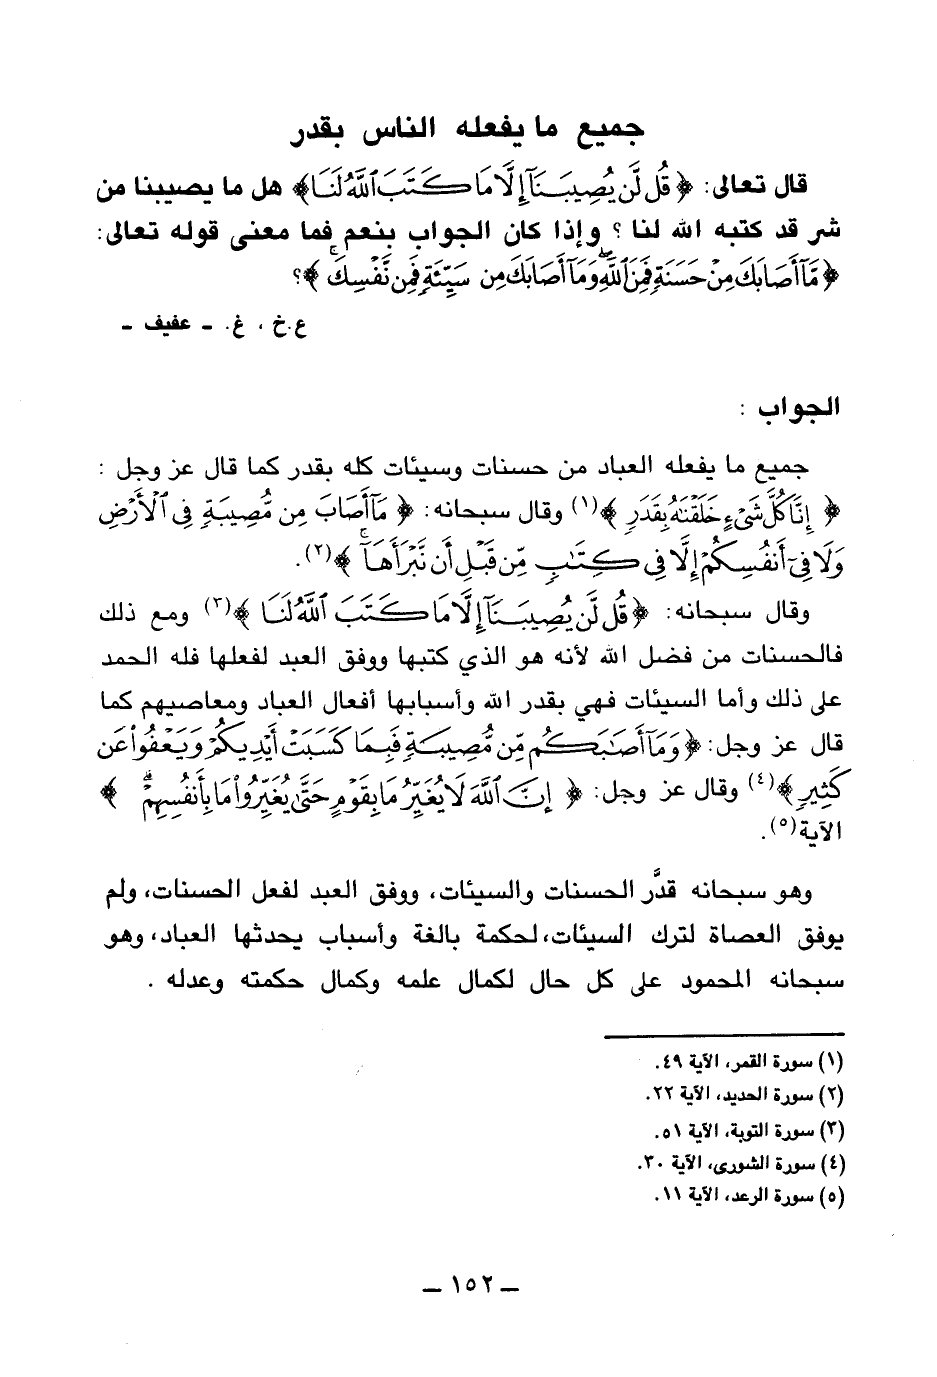 جميع ما يفعله الناس بقدر
قال تعالى: ﴿ قُل لَّن يُصِيبَنَآ إِلَّا مَا كَتَبَ ٱللَّهُ لَنَا ﴾ هل ما يصيبنا من
شر قد كتبه الله لنا ؟ وإذا كان الجواب بنعم فما معنى قوله تعالى:
﴿ مَّآ أَصَابَكَ مِنْ حَسَنَةٍ فَمِنَ ٱللَّهِ ۖ وَمَآ أَصَابَكَ مِن سَيِّئَةٍ فَمِن نَّفْسِكَ ۚ ﴾؟
ع.خ ، غ. ـ عفيف ـ
الجواب :
جميع ما يفعله العباد من حسنات وسيئات كله بقدر كما قال عز وجل :
﴿ إِنَّا كُلَّ شَىْءٍ خَلَقْنَٰهُ بِقَدَرٍ ﴾(١) وقال سبحانه: ﴿ مَآ أَصَابَ مِن مُّصِيبَةٍ فِى ٱلْأَرْضِ
وَلَا فِىٓ أَنفُسِكُمْ إِلَّا فِى كِتَٰبٍ مِّن قَبْلِ أَن نَّبْرَأَهَآ ۚ ﴾(٢).
وقال سبحانه: ﴿ قُل لَّن يُصِيبَنَآ إِلَّا مَا كَتَبَ ٱللَّهُ لَنَا ﴾(٣) ومع ذلك
فالحسنات من فضل الله لأنه هو الذي كتبها ووفق العبد لفعلها فله الحمد
على ذلك وأما السيئات فهي بقدر الله وأسبابها أفعال العباد ومعاصيهم كما
قال عز وجل: ﴿ وَمَآ أَصَٰبَكُم مِّن مُّصِيبَةٍ فَبِمَا كَسَبَتْ أَيْدِيكُمْ وَيَعْفُوا۟ عَن
كَثِيرٍ ﴾(٤) وقال عز وجل: ﴿ إِنَّ ٱللَّهَ لَا يُغَيِّرُ مَا بِقَوْمٍ حَتَّىٰ يُغَيِّرُوا۟ مَا بِأَنفُسِهِمْ ۗ ﴾
الآية(٥).
وهو سبحانه قدَّر الحسنات والسيئات، ووفق العبد لفعل الحسنات، ولم
يوفق العصاة لترك السيئات، لحكمة بالغة وأسباب يحدثها العباد، وهو
سبحانه المحمود على كل حال لكمال علمه وكمال حكمته وعدله .
(١) سورة القمر، الآية ٤٩.
(٢) سورة الحديد، الآية ٢٢.
(٣) سورة التوبة، الآية ٥١.
(٤) سورة الشورى، الآية ٣٠.
(٥) سورة الرعد، الآية ١١.
ـ ١٥٢ ـ